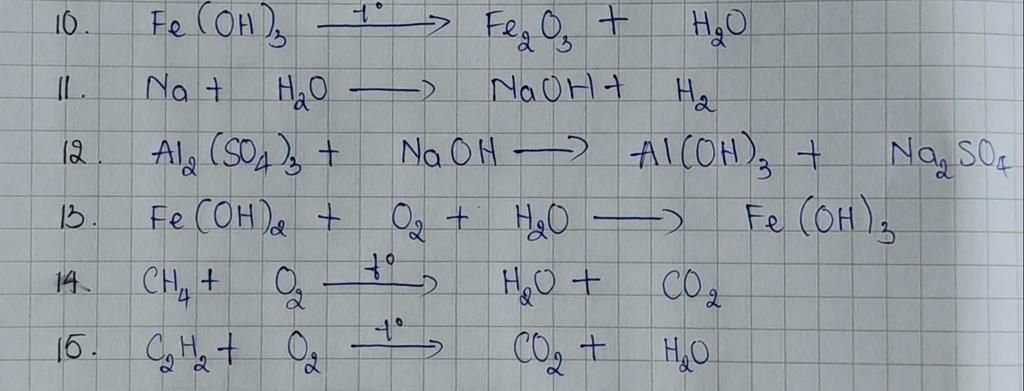 10. Fe(OH)₃ —t°→ Fe₂O₃ + H₂O
11. Na + H₂O ⟶ NaOH + H₂
12. Al₂(SO₄)₃ + NaOH ⟶ Al(OH)₃ + Na₂SO₄
13. Fe(OH)₂ + O₂ + H₂O ⟶ Fe(OH)₃
14. CH₄ + O₂ —t°→ H₂O + CO₂
15. C₂H₂ + O₂ —t°→ CO₂ + H₂O